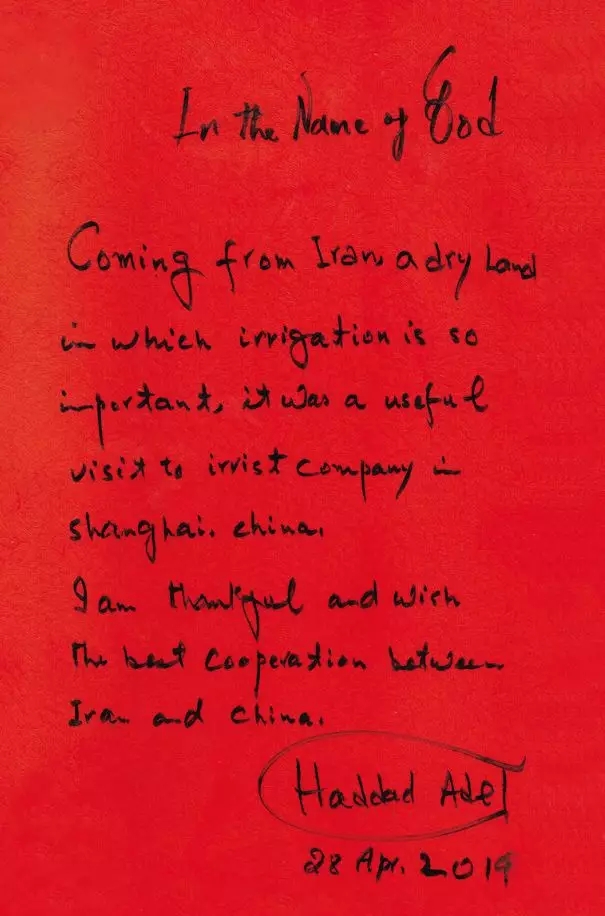 In the Name of God
Coming from Iran, a dry Land
in which irrigation is so
important, it was a useful
visit to irrist company in
shanghai. china.
I am thankful and wish
The best cooperation between
Iran and china.
Haddad Adel
28 Apr. 2019